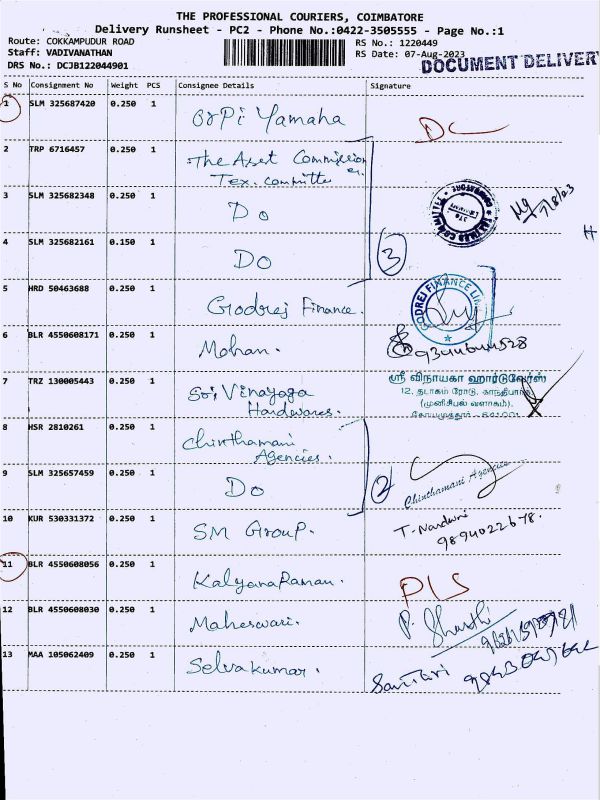 THE PROFESSIONAL COURIERS, COIMBATORE
Delivery Runsheet - PC2 - Phone No.:0422-3505555 - Page No.:1
Route: COKKAMPUDUR ROAD
RS No.: 1220449
Staff: VADIVANATHAN
RS Date: 07-Aug-2023
DRS No.: DCJB122044901
DOCUMENT DELIVERY
S No Consignment No Weight PCS Consignee Details Signature
1 SLM 325687420 0.250 1 Yamaha DC
2 TRP 6716457 0.250 1 The Asst Commission er.
Tex. Committe
3 SLM 325682348 0.250 1 Do
7/8/23
4 SLM 325682161 0.150 1 Do 3
5 HRD 50463688 0.250 1 Godrej Finance. GODREJ FINANCE
6 BLR 4550608171 0.250 1 Mohan.
7 TRZ 130005443 0.250 1 Sri Vinayaga
Hardwares.
ஸ்ரீ விநாயகா ஹார்டுவேர்ஸ்
12, தடாகம் ரோடு, காந்திபார்க்
(முனிசிபல் வளாகம்),
கோயமுத்தூர் - 641001
8 HSR 2810261 0.250 1 Chinthamani
Agencies.
9 SLM 325657459 0.250 1 Do 2 Chinthamani Agencies
10 KUR 530331372 0.250 1 SM Group.
9894022678.
11 BLR 4550608056 0.250 1 KalyanaRaman. PLS
12 BLR 4550608030 0.250 1 Maheswari. P.
13 MAA 105062409 0.250 1 Selvakumar.